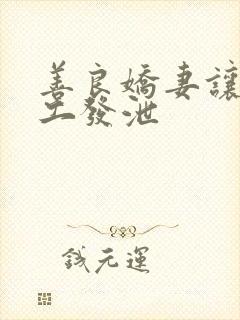 善良嬌妻讓
工發泄
钱元運